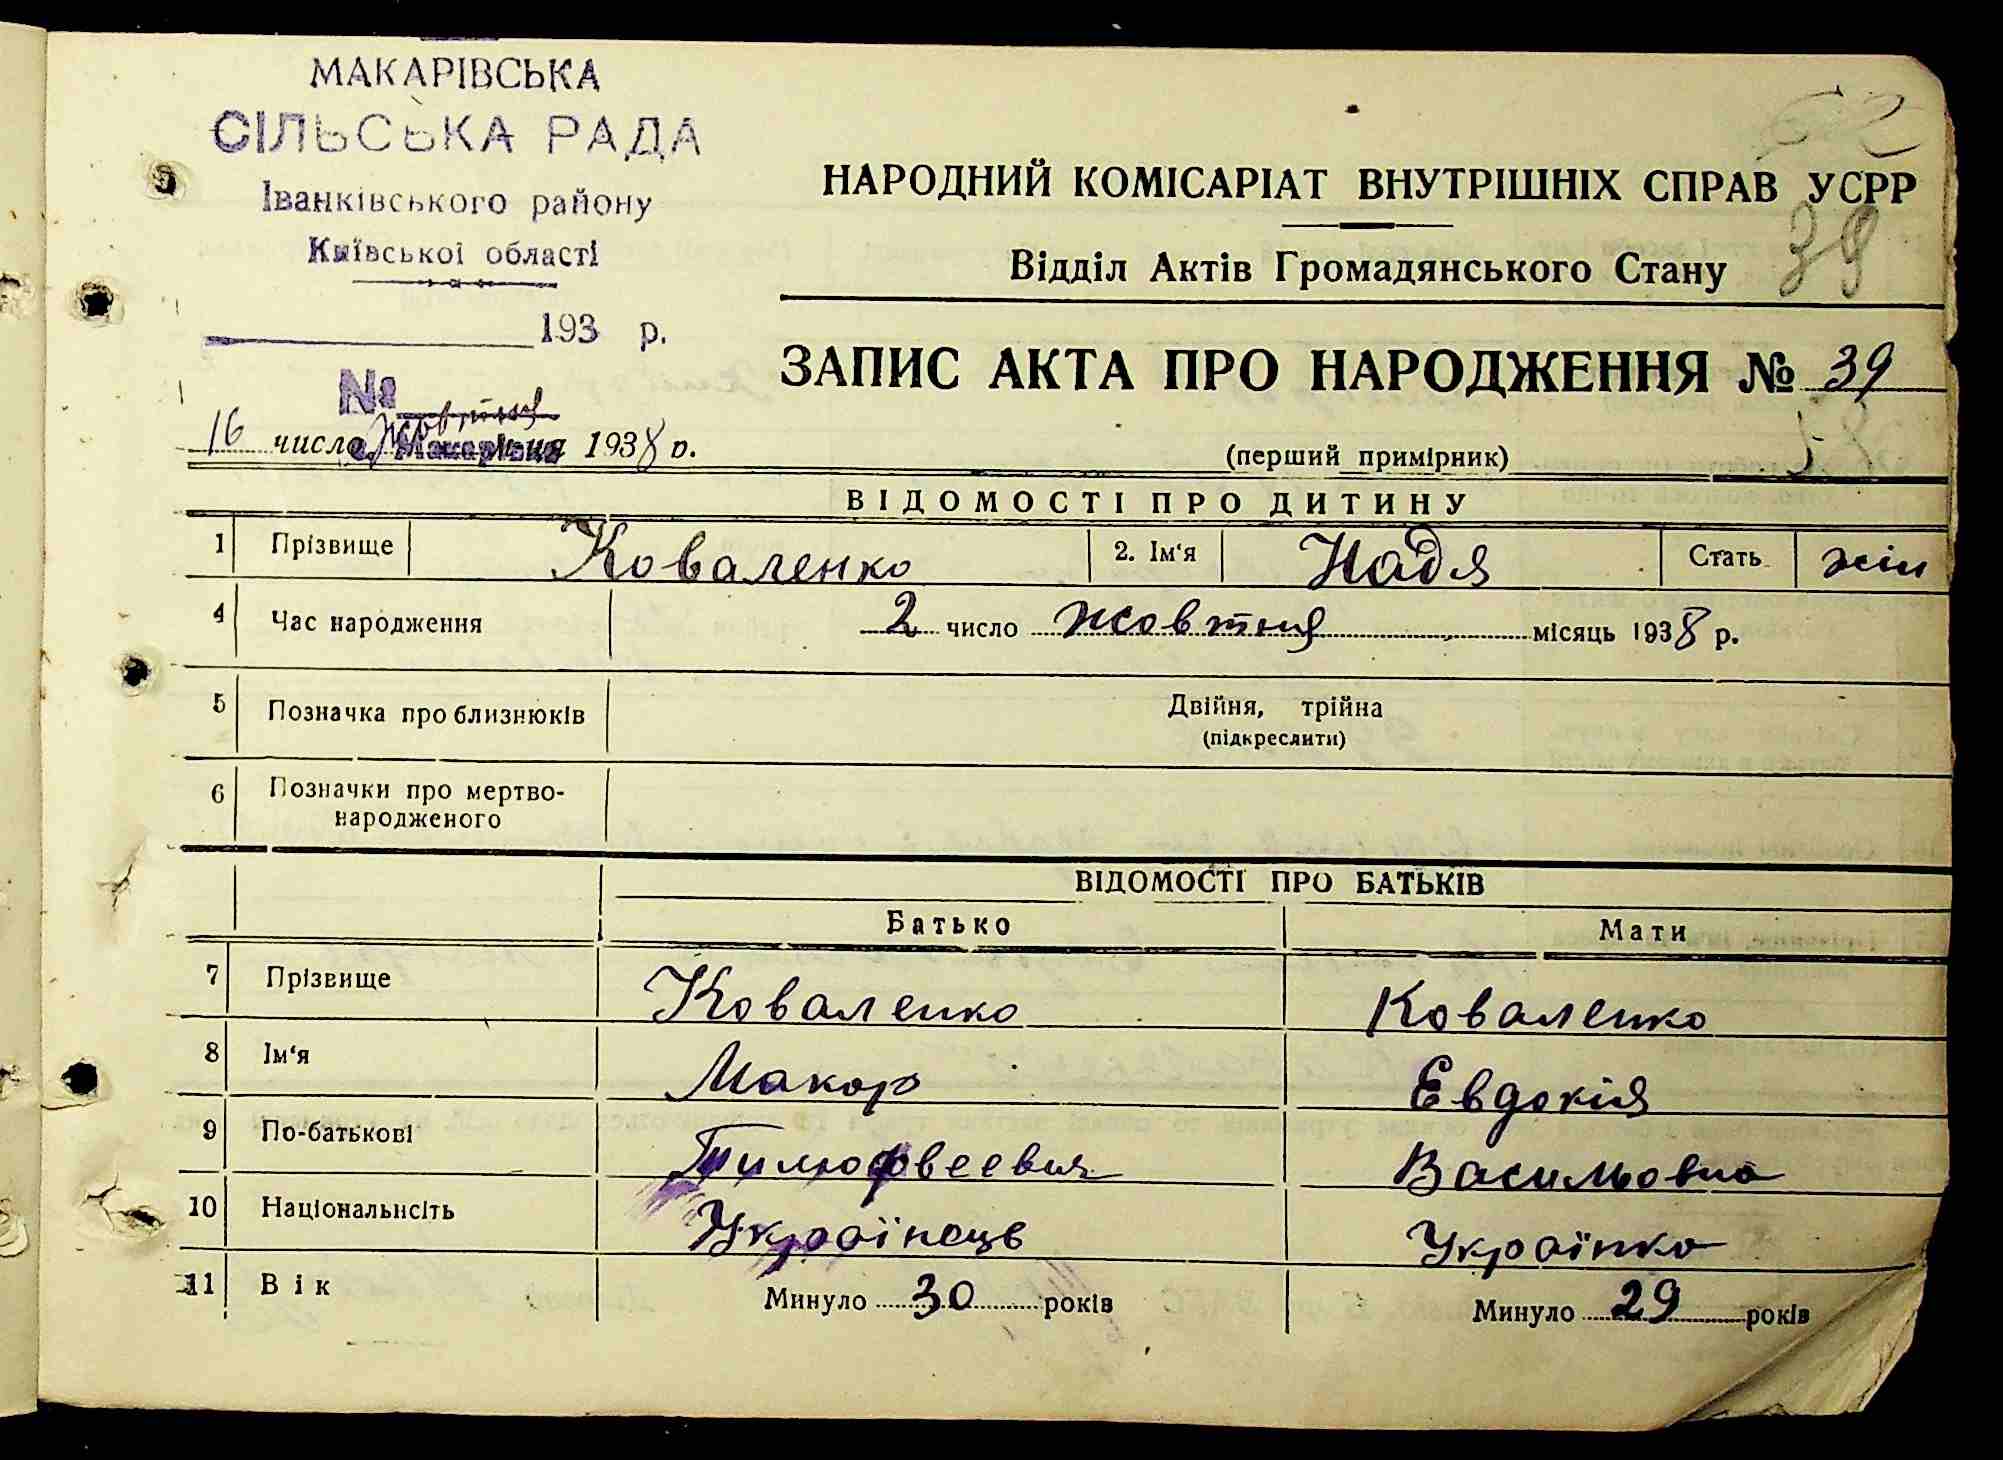 МАКАРІВСЬКА
СІЛЬСЬКА РАДА
Іванківського району
Київської області
193 р.
№
с. Макарівка
62
НАРОДНИЙ КОМІСАРІАТ ВНУТРІШНІХ СПРАВ УСРР
39
Відділ Актів Громадянського Стану
ЗАПИС АКТА ПРО НАРОДЖЕННЯ № 39
16 число Жовтня 1938 р.
(перший примірник)
58
ВІДОМОСТІ ПРО ДИТИНУ
1 Прізвище Коваленко 2. Ім'я Надя Стать жін
4 Час народження 2 число жовтня місяць 1938 р.
5 Позначка про близнюків Двійня, трійна
(підкреслити)
6 Позначки про мертво-
народженого
ВІДОМОСТІ ПРО БАТЬКІВ
Батько Мати
7 Прізвище Коваленко Коваленко
8 Ім'я Макар Евдокія
9 По-батькові Тимофеевич Васильовна
10 Національність Українець Українка
11 Вік Минуло 30 років Минуло 29 років